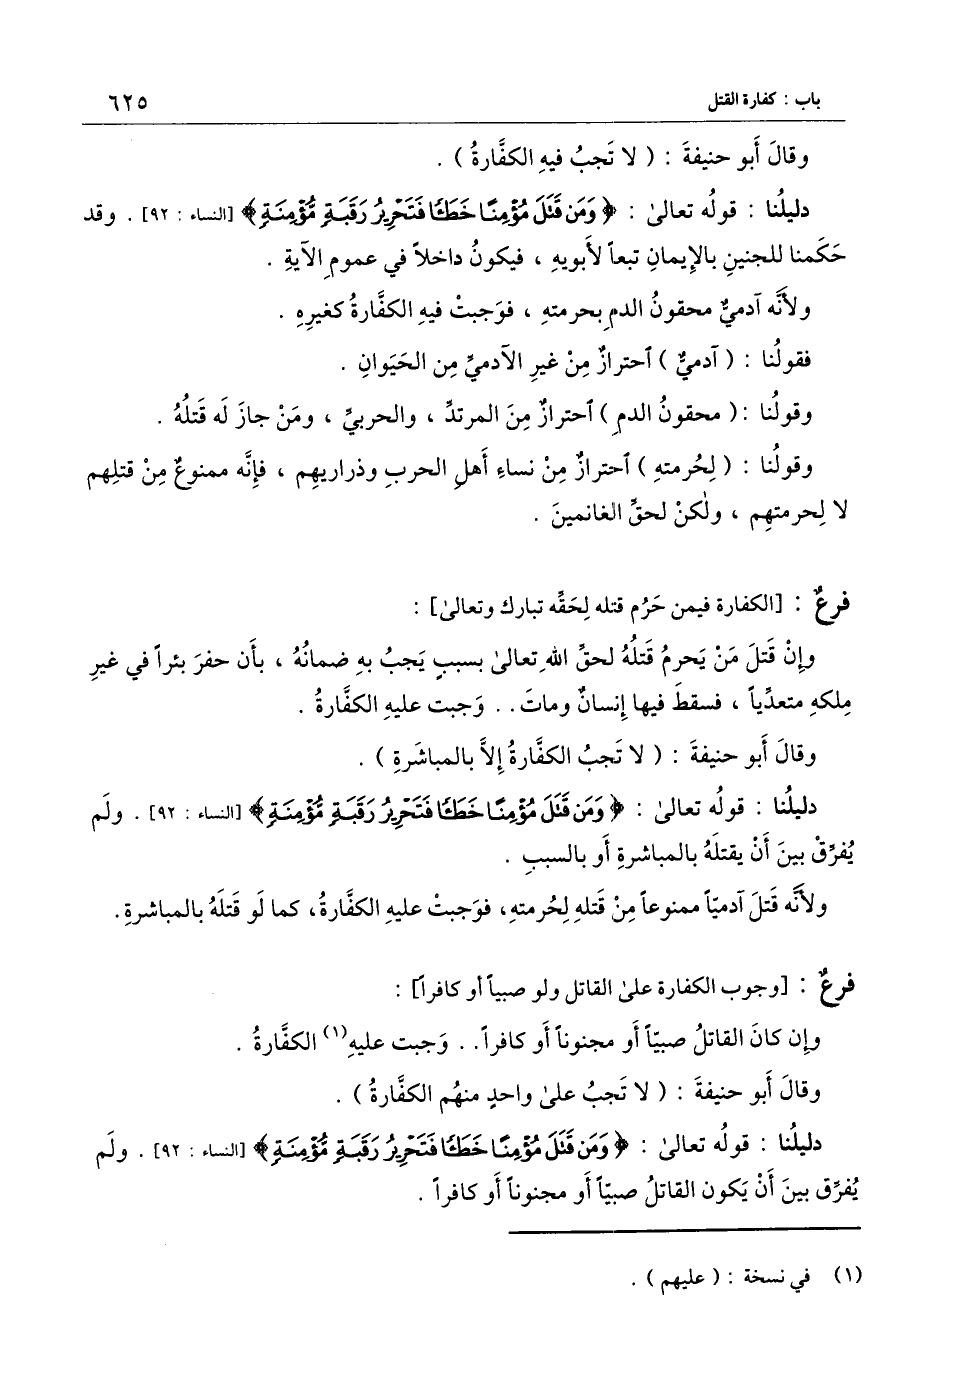 باب : كفارة القتل ٦٢٥
وقالَ أَبو حنيفةَ : ( لا تَجبُ فيهِ الكفَّارةُ ) .
دليلُنا : قولُه تعالىٰ : ﴿ وَمَن قَتَلَ مُؤْمِنًا خَطَـًٔا فَتَحْرِيرُ رَقَبَةٍ مُّؤْمِنَةٍ ﴾ [النساء : ٩٢] . وقد
حَكَمنا للجنينِ بالإِيمانِ تبعاً لأَبويهِ ، فيكونُ داخلاً في عمومِ الآيةِ .
ولأَنَّه آدميٌّ محقونُ الدمِ بحرمتهِ ، فوَجبتْ فيهِ الكفَّارةُ كغيرِهِ .
فقولُنا : ( آدميٌّ ) ٱحترازٌ مِنْ غيرِ الآدميِّ مِن الحَيَوانِ .
وقولُنا : ( محقونُ الدمِ ) ٱحترازٌ مِنَ المرتدِّ ، والحربيِّ ، ومَنْ جازَ لَه قَتلُهُ .
وقولُنا : ( لِحُرمتهِ ) ٱحترازٌ مِنْ نساءِ أَهلِ الحربِ وذراريهِم ، فإِنَّه ممنوعٌ مِنْ قتلِهم
لا لِحرمتهِم ، ولٰكنْ لحقِّ الغانمينَ .
فرعٌ : [الكفارة فيمن حَرُم قتله لِحَقِّه تبارك وتعالىٰ] :
وإِنْ قَتلَ مَنْ يَحرمُ قَتلُهُ لحقِّ اللهِ تعالىٰ بسببٍ يَجبُ بهِ ضمانُهُ ، بأَن حفرَ بئراً في غيرِ
مِلكهِ متعدِّياً ، فسقطَ فيها إِنسانٌ وماتَ . . وَجبت عليهِ الكفَّارةُ .
وقالَ أَبو حنيفةَ : ( لا تَجبُ الكفَّارةُ إِلاَّ بالمباشَرةِ ) .
دليلُنا : قولُه تعالىٰ : ﴿ وَمَن قَتَلَ مُؤْمِنًا خَطَـًٔا فَتَحْرِيرُ رَقَبَةٍ مُّؤْمِنَةٍ ﴾ [النساء : ٩٢] . ولَم
يُفرِّقْ بينَ أَنْ يقتلَهُ بالمباشرةِ أَو بالسببِ .
ولأَنَّه قَتلَ آدميّاً ممنوعاً مِنْ قَتلهِ لِحُرمتهِ، فوَجبتْ عليهِ الكفَّارةُ، كما لَو قَتلَهُ بالمباشرةِ.
فرعٌ : [وجوب الكفارة علىٰ القاتل ولو صبياً أو كافراً] :
وإِن كانَ القاتلُ صبيّاً أَو مجنوناً أَو كافراً. . وَجبت عليهِ(١) الكفَّارةُ .
وقالَ أَبو حنيفةَ : ( لا تَجبُ علىٰ واحدٍ منهُم الكفَّارةُ ) .
دليلُنا : قولُه تعالىٰ : ﴿ وَمَن قَتَلَ مُؤْمِنًا خَطَـًٔا فَتَحْرِيرُ رَقَبَةٍ مُّؤْمِنَةٍ ﴾ [النساء : ٩٢] . ولَم
يُفرِّق بينَ أَنْ يَكون القاتلُ صبيّاً أَو مجنوناً أَو كافراً .
(١) في نسخة : ( عليهم ) .